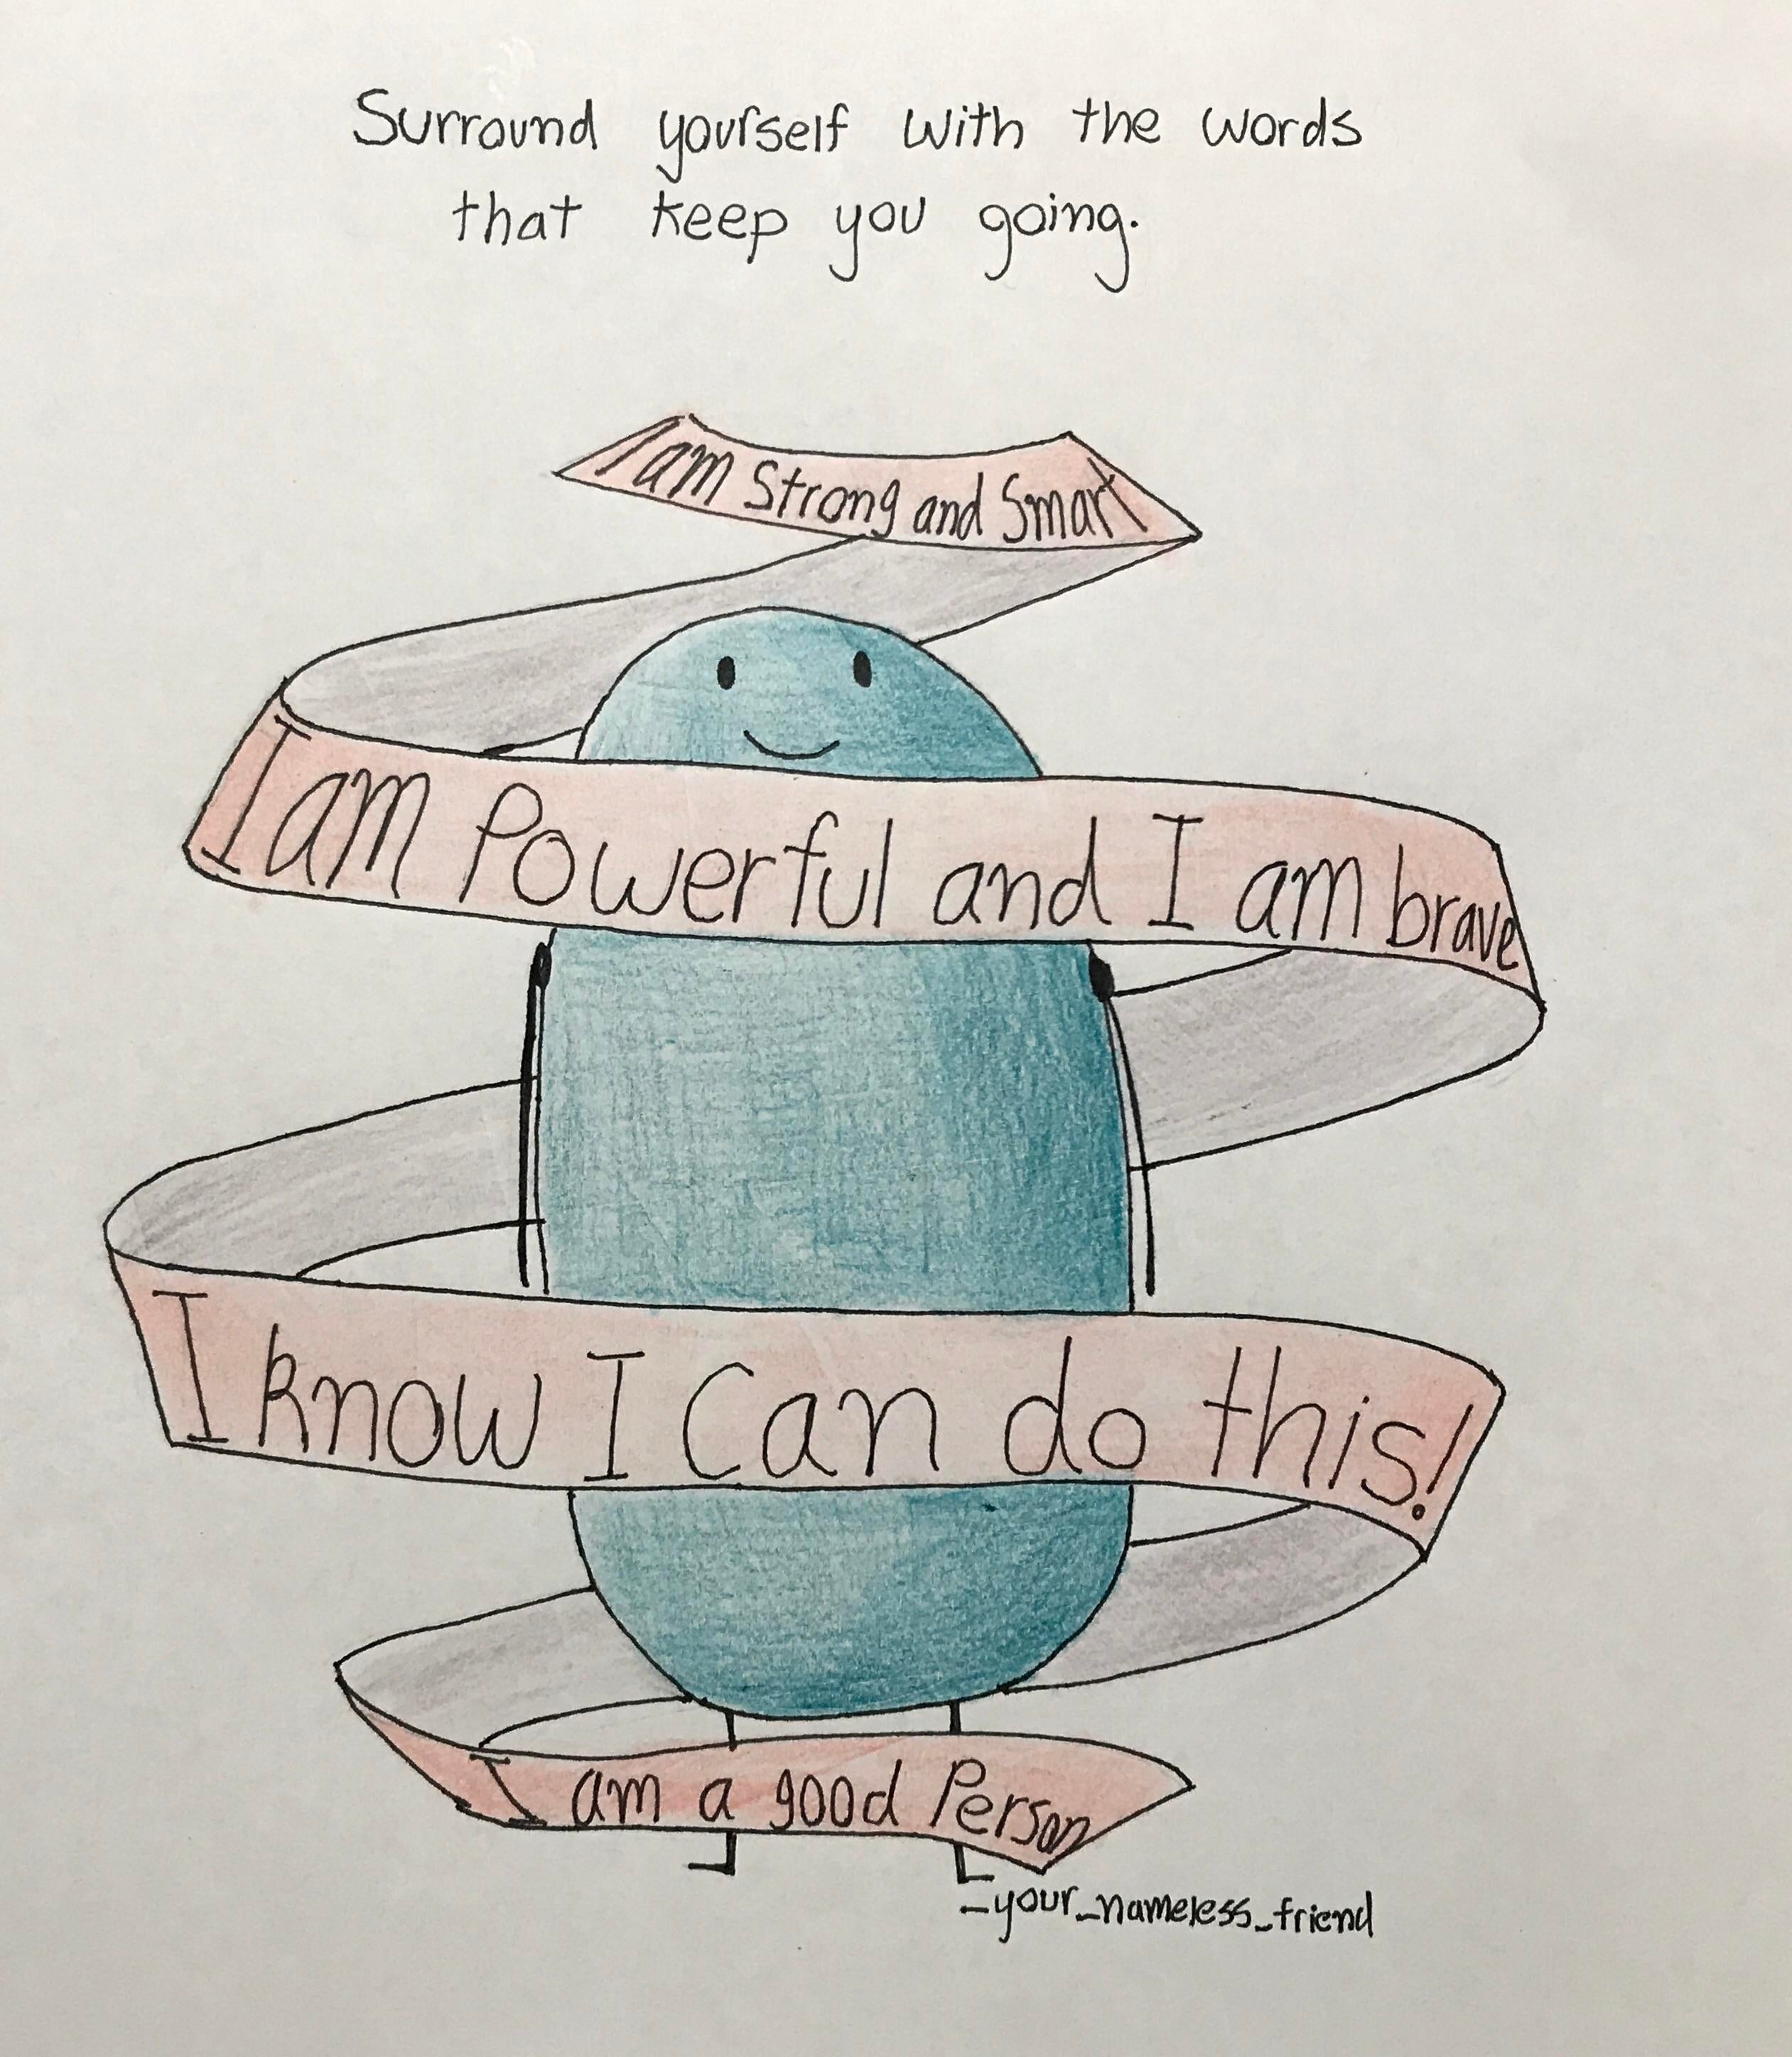 Surround yourself with the words
that keep you going.
I am Strong and Smart
I am Powerful and I am brave
I know I Can do this!
I am a good Person
_your_nameless_friend